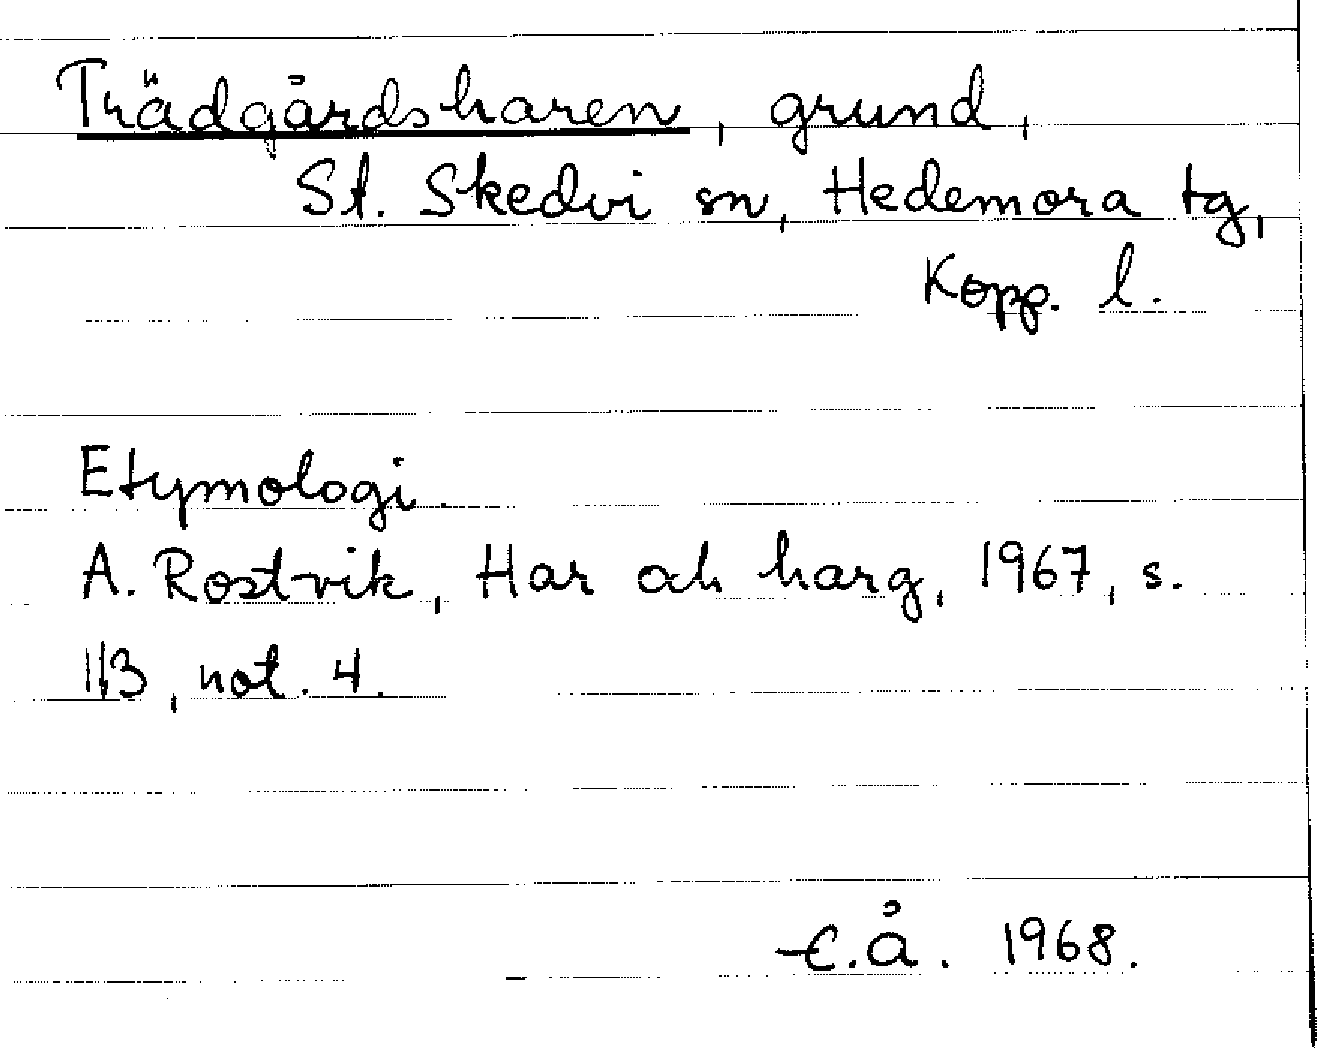 Trädgårdsharen, grund,
St. Skedvi sn, Hedemora tg,
Kopp. l.
Etymologi.
A. Rostvik, Har och harg, 1967, s.
113, not. 4.
E.Å. 1968.